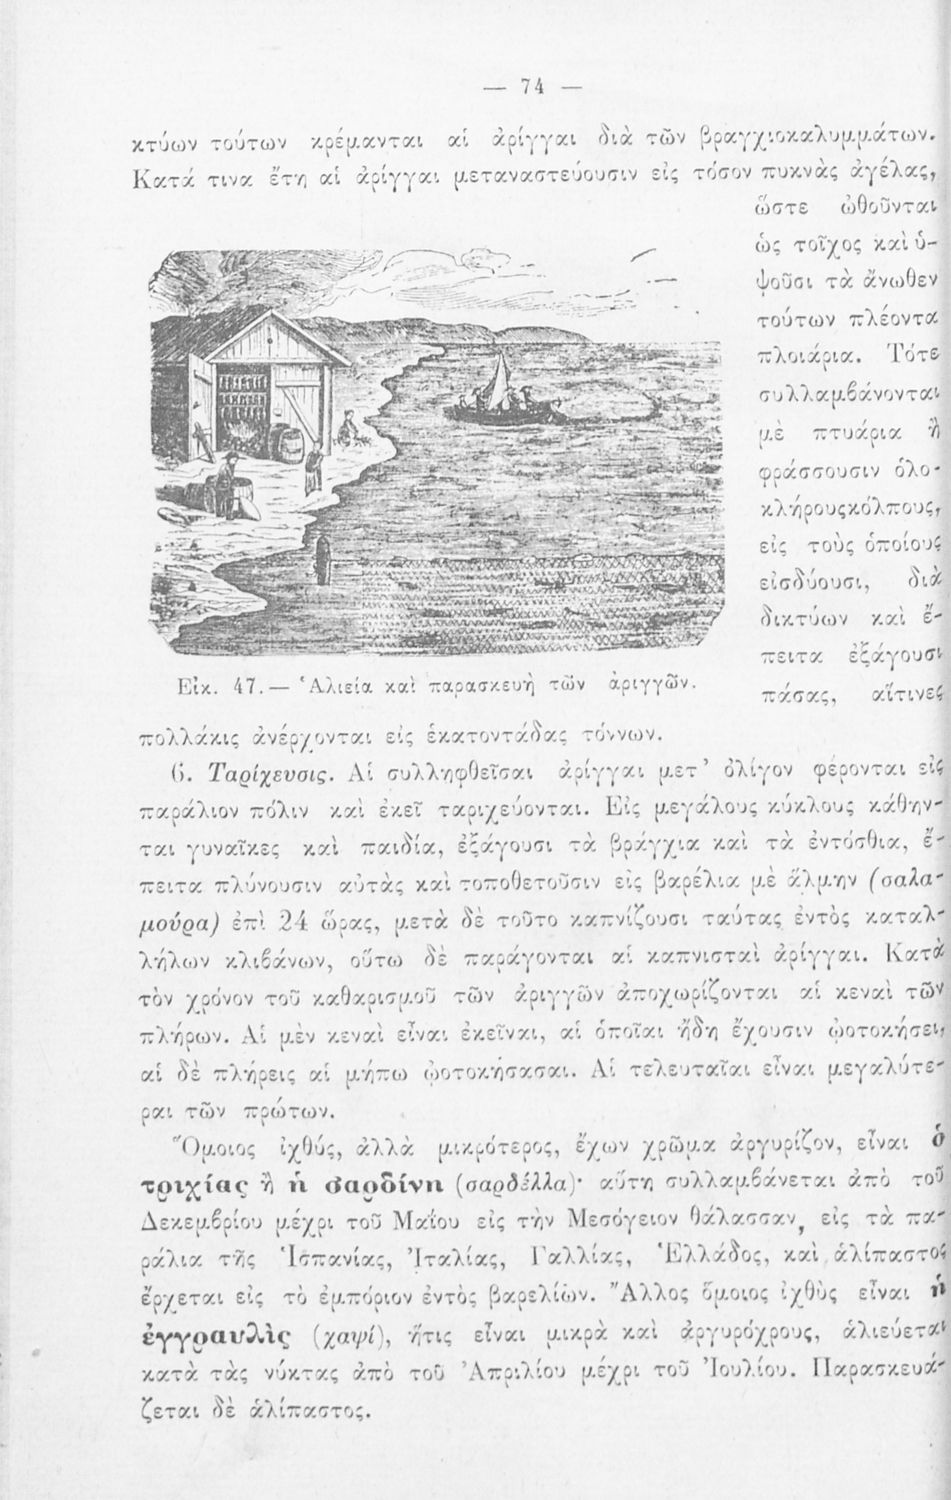 — 74 —
κτύων τούτων κρέμανται αἱ ἀρίγγαι διὰ τῶν βραγχιοκαλυμμάτων.
Κατά τινα ἔτη αἱ ἀρίγγαι μεταναστεύουσιν εἰς τόσον πυκνὰς ἀγέλας,
ὥστε ὠθοῦνται
ὡς τοῖχος καὶ ὑ-
ψοῦσι τὰ ἄνωθεν
τούτων πλέοντα
πλοιάρια. Τότε
συλλαμβάνονται
μὲ πτυάρια ἢ
φράσσουσιν ὁλο-
κλήρους κόλπους,
εἰς τοὺς ὁποίους
εἰσδύουσι, διὰ
δικτύων καὶ ἔ-
πειτα ἐξάγουσι
πάσας, αἵτινες
Εἰκ. 47.— Ἁλιεία καὶ παρασκευὴ τῶν ἀριγγῶν.
πολλάκις ἀνέρχονται εἰς ἑκατοντάδας τόννων.
6. Ταρίχευσις. Αἱ συλληφθεῖσαι ἀρίγγαι μετ’ ὀλίγον φέρονται εἰς
παράλιον πόλιν καὶ ἐκεῖ ταριχεύονται. Εἰς μεγάλους κύκλους κάθην-
ται γυναῖκες καὶ παιδία, ἐξάγουσι τὰ βράγχια καὶ τὰ ἐντόσθια, ἔ-
πειτα πλύνουσιν αὐτὰς καὶ τοποθετοῦσιν εἰς βαρέλια μὲ ἅλμην (σαλα-
μούρα) ἐπὶ 24 ὥρας, μετὰ δὲ τοῦτο καπνίζουσι ταύτας ἐντὸς καταλ-
λήλων κλιβάνων, οὕτω δὲ παράγονται αἱ καπνισταὶ ἀρίγγαι. Κατὰ
τὸν χρόνον τοῦ καθαρισμοῦ τῶν ἀριγγῶν ἀποχωρίζονται αἱ κεναὶ τῶν
πλήρων. Αἱ μὲν κεναὶ εἶναι ἐκεῖναι, αἱ ὁποῖαι ἤδη ἔχουσιν ᾠοτοκήσει,
αἱ δὲ πλήρεις αἱ μήπω ᾠοτοκήσασαι. Αἱ τελευταῖαι εἶναι μεγαλύτε-
ραι τῶν πρώτων.
Ὅμοιος ἰχθύς, ἀλλὰ μικρότερος, ἔχων χρῶμα ἀργυρίζον, εἶναι ὁ
τριχίας ἢ ἡ σαρδίνη (σαρδέλλα)· αὕτη συλλαμβάνεται ἀπὸ τοῦ
Δεκεμβρίου μέχρι τοῦ Μαΐου εἰς τὴν Μεσόγειον θάλασσαν, εἰς τὰ πα-
ράλια τῆς Ἱσπανίας, Ἰταλίας, Γαλλίας, Ἑλλάδος, καὶ ἁλίπαστος
ἔρχεται εἰς τὸ ἐμπόριον ἐντὸς βαρελίων. Ἄλλος ὅμοιος ἰχθὺς εἶναι ἡ
ἐγγραυλὶς (χαψί), ἥτις εἶναι μικρὰ καὶ ἀργυρόχρους, ἁλιεύεται
κατὰ τὰς νύκτας ἀπὸ τοῦ Ἀπριλίου μέχρι τοῦ Ἰουλίου. Παρασκευά-
ζεται δὲ ἁλίπαστος.